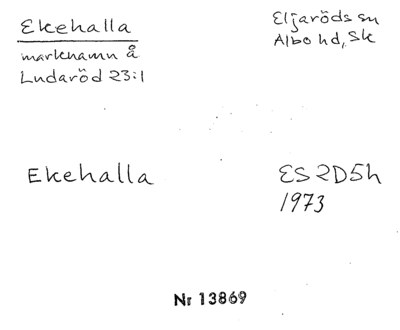 Ekehalla
marknamn å
Ludaröd 23:1
Eljaröds sn
Albo hd, Sk
Ekehalla
ES 2D5h
1973
Nr 13869